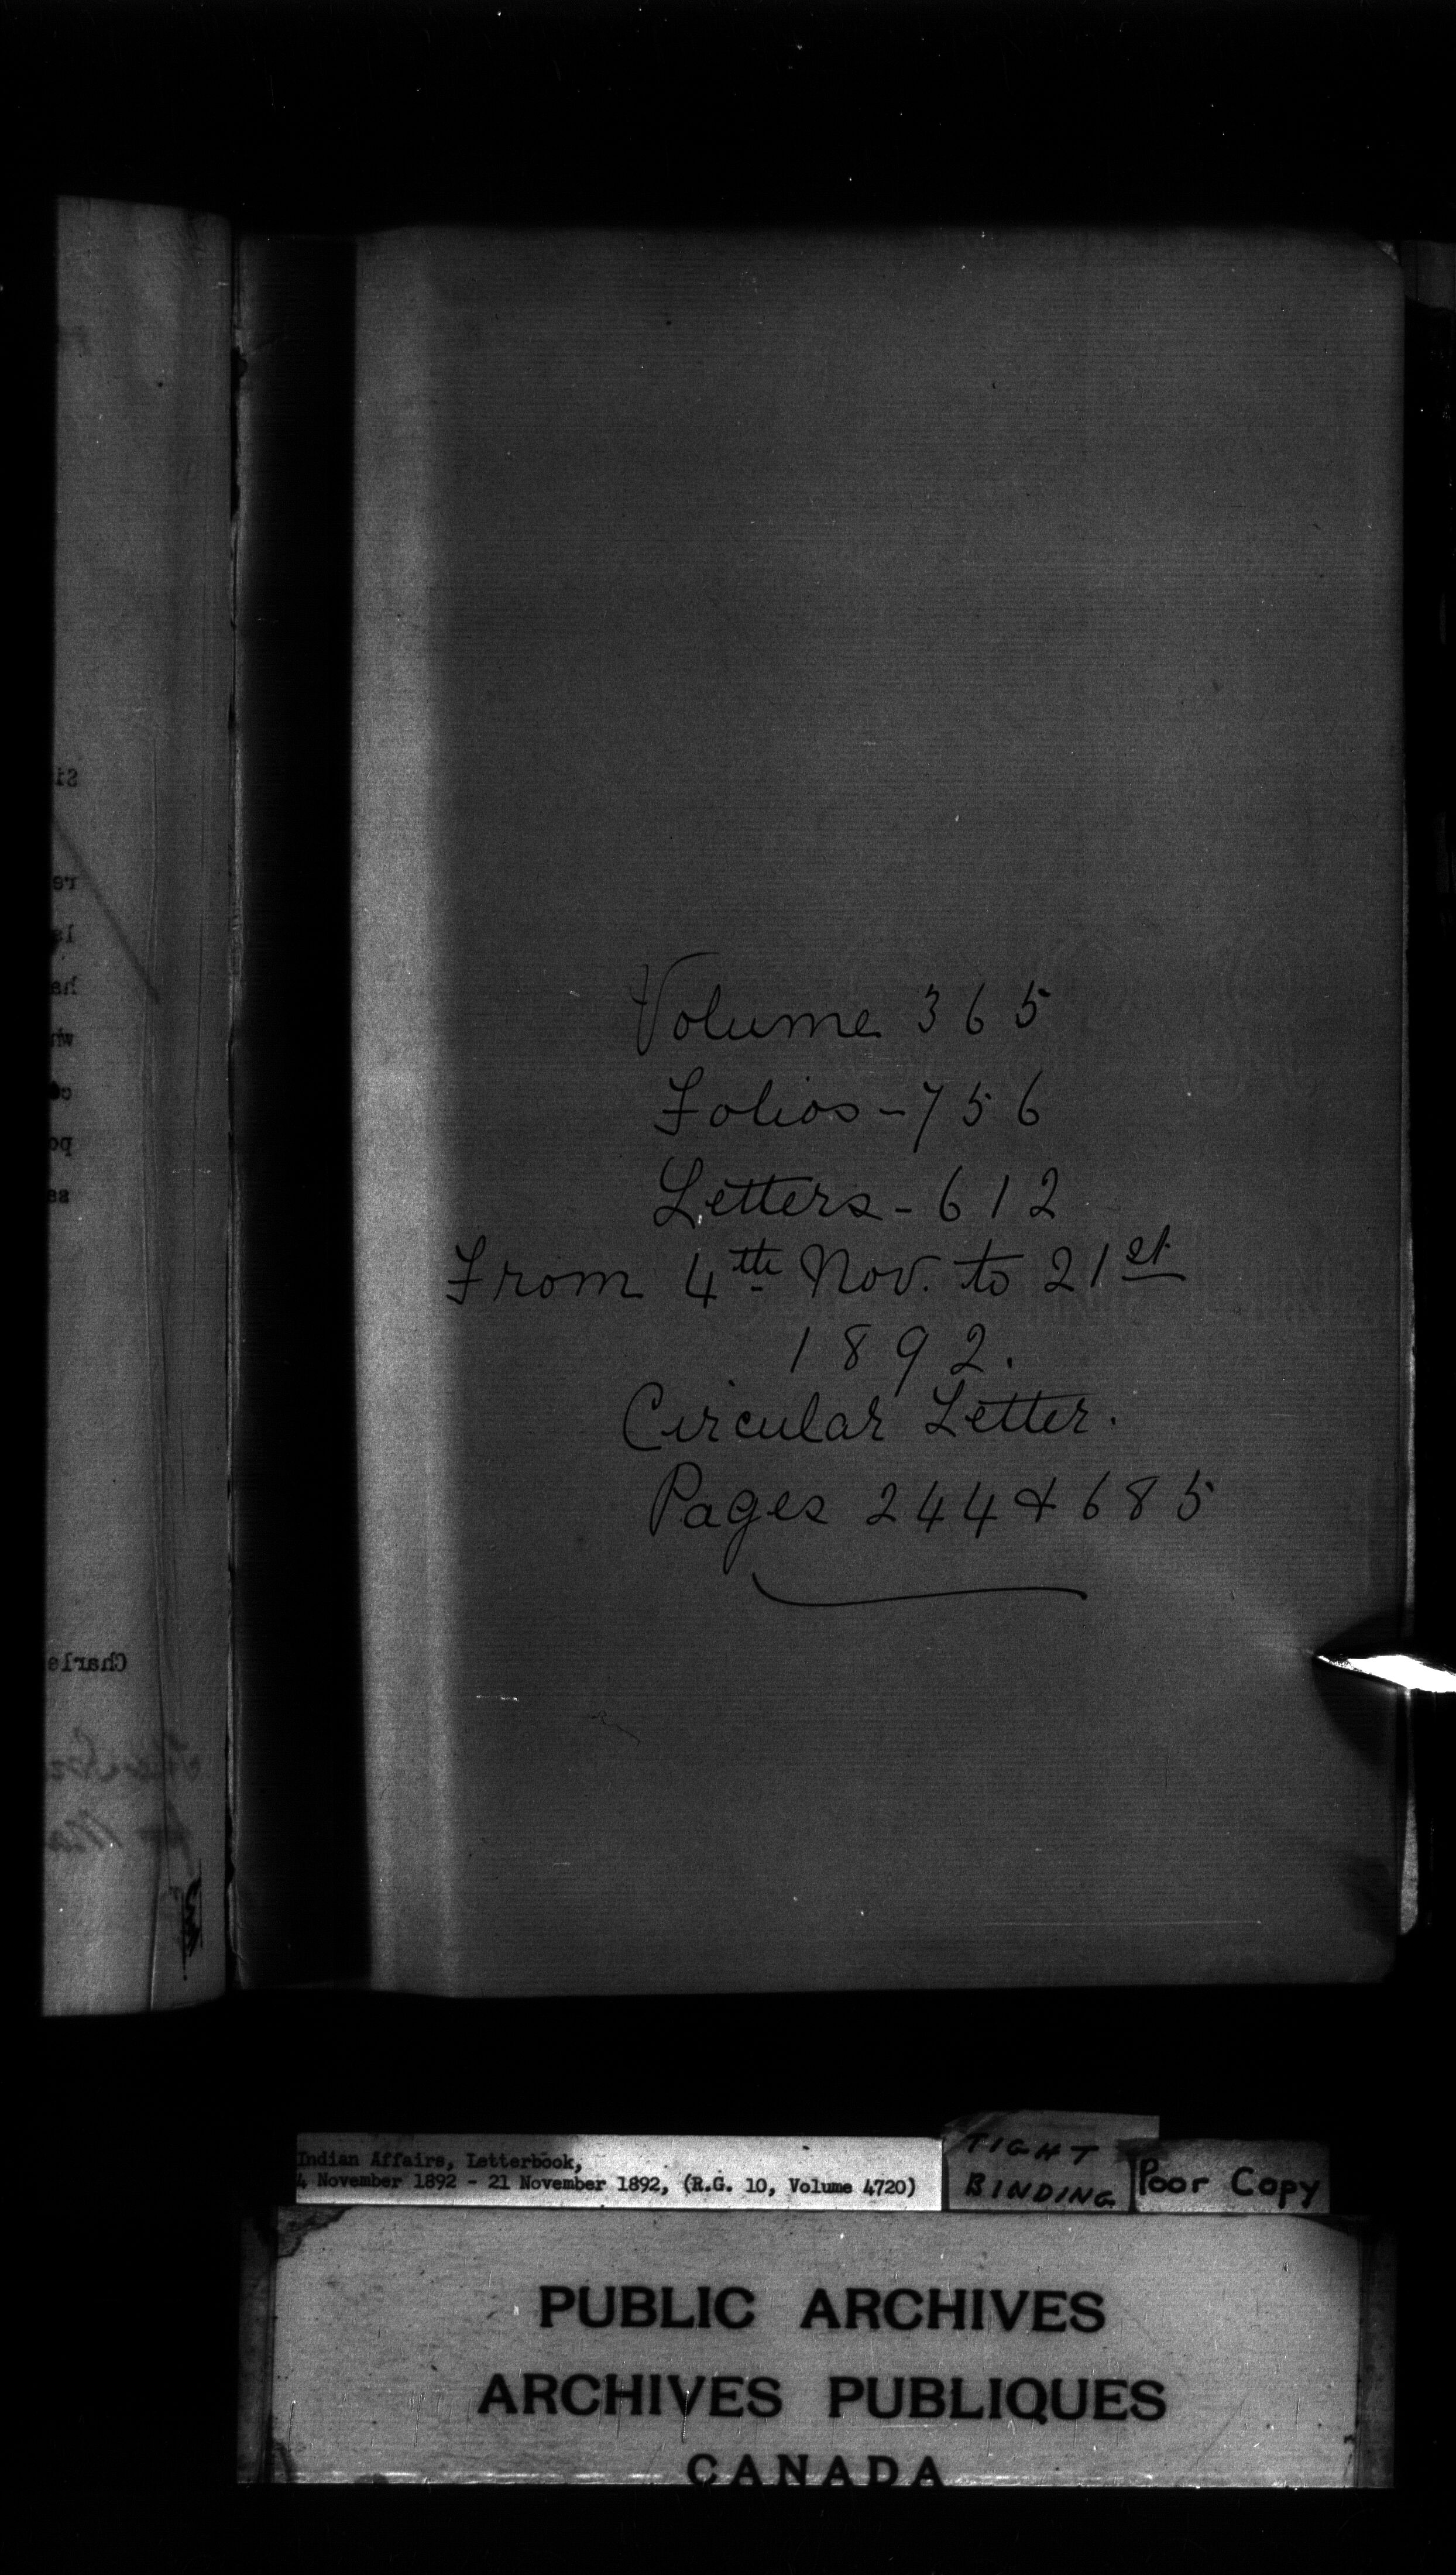 Volume 365
Folios - 756
Letters - 612
From 4th Nov. to 21st
1892.
Circular Letter.
Pages 244 & 685
Charle
Indian Affairs, Letterbook,
4 November 1892 - 21 November 1892, (R.G. 10, Volume 4720)
TIGHT
BINDING
Poor Copy
PUBLIC ARCHIVES
ARCHIVES PUBLIQUES
CANADA